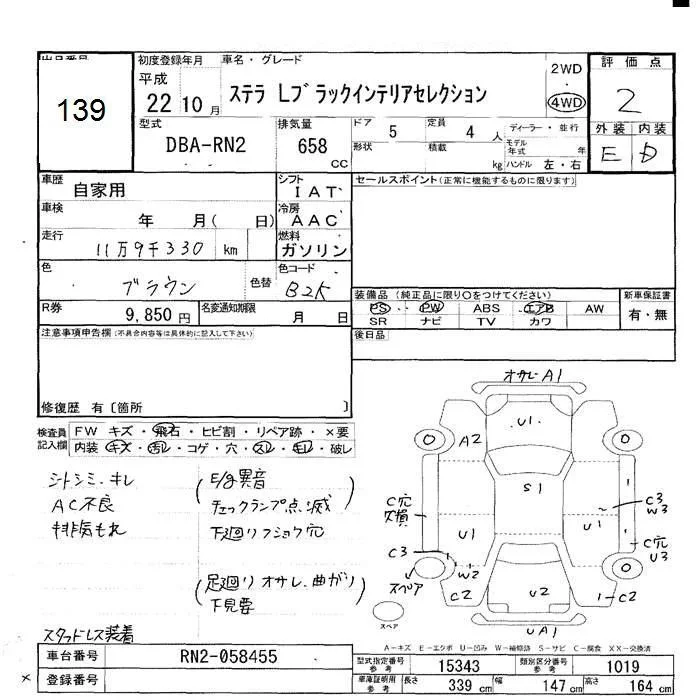 出品番号
139
初度登録年月 車名・グレード
平成
22 10 月
ステラ Lブラックインテリアセレクション
2WD
4WD
評価点
2
外装 内装
E D
型式
DBA-RN2
排気量
658 cc
ドア 5
定員 4 人
形状
積載 kg
ディーラー・並行
モデル年式 年
ハンドル 左・右
車歴
自家用
シフト
IAT
セールスポイント(正常に機能するものに限ります)
車検
年 月( 日)
冷房
AAC
走行
11万9千330 km
燃料
ガソリン
色
ブラウン
色替
色コード
B2K
装備品(純正品に限り○をつけてください)
PS PW ABS エアB AW
SR ナビ TV カワ
新車保証書
有・無
R券
9,850円
名変通知期限
月 日
後日品
注意事項申告欄(不具合内容等は具体的に記入して下さい)
修復歴 有〔箇所 〕
検査員記入欄
FW キズ・飛石・ヒビ割・リペア跡・×要
内装・キズ・汚レ・コゲ・穴・スレ・モレ・破レ
シトシミ.キレ
AC不良
排気もれ
(E/g異音
チェックランプ点滅)
下廻りフショク穴
(足廻り オサレ.曲がり
下見要)
スタッドレス装着
オサレ A1
U1
A2
S1
C穴
欠損
C3
W3
U1
U1
C穴
U3
C3
W2
スペア
C2
U2
C2
UA1
スペア
A-キズ E-エクボ U-凹み W-補修跡 S-サビ C-腐食 XX-交換済
車台番号
RN2-058455
型式指定番号 参考
15343
類別区分番号 参考
1019
登録番号
車庫証明用 参考
長さ 339 cm
幅 147 cm
高さ 164 cm